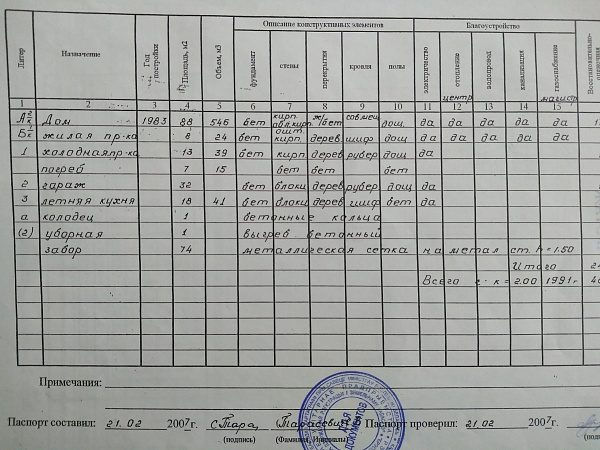 Описание конструктивных элементов Благоустройство
Литер Назначение Год постройки Площадь, м2 Объем, м3 фундамент стены перекрытия кровля полы электричество отопление водопровод канализация газоснабжение Восстановительно-
центр магистр
1 2 3 4 5 6 7 8 9 10 11 12 13 14 15
А 2/к Дом 1983 88 546 бет кирп. обл.кирп. ж/бет совмещ дощ да да да да да
Б 1/к жилая пр-ка 8 24 бет ошт. кирп дерев шиф дощ да да да да да
1 холодная пр-ка 13 39 бет кирп дерев рубер дощ да
погреб 7 15 бет бет бет
2 гараж 32 бет блоки дерев рубер дощ да
3 летняя кухня 18 41 бет блоки дерев шиф бет да
а колодец 1 бетонные кольца
(2) уборная 1 выгреб бетонный
забор 74 металлическая сетка на метал ст. h=1.50
Итого
Всего к=2.00 1991г
Примечания:
Паспорт составил: 21.02 2007г. Паспорт проверил: 21.02 2007г.
(подпись) (Фамилия, Инициалы)
ДЛЯ ДОКУМЕНТОВ